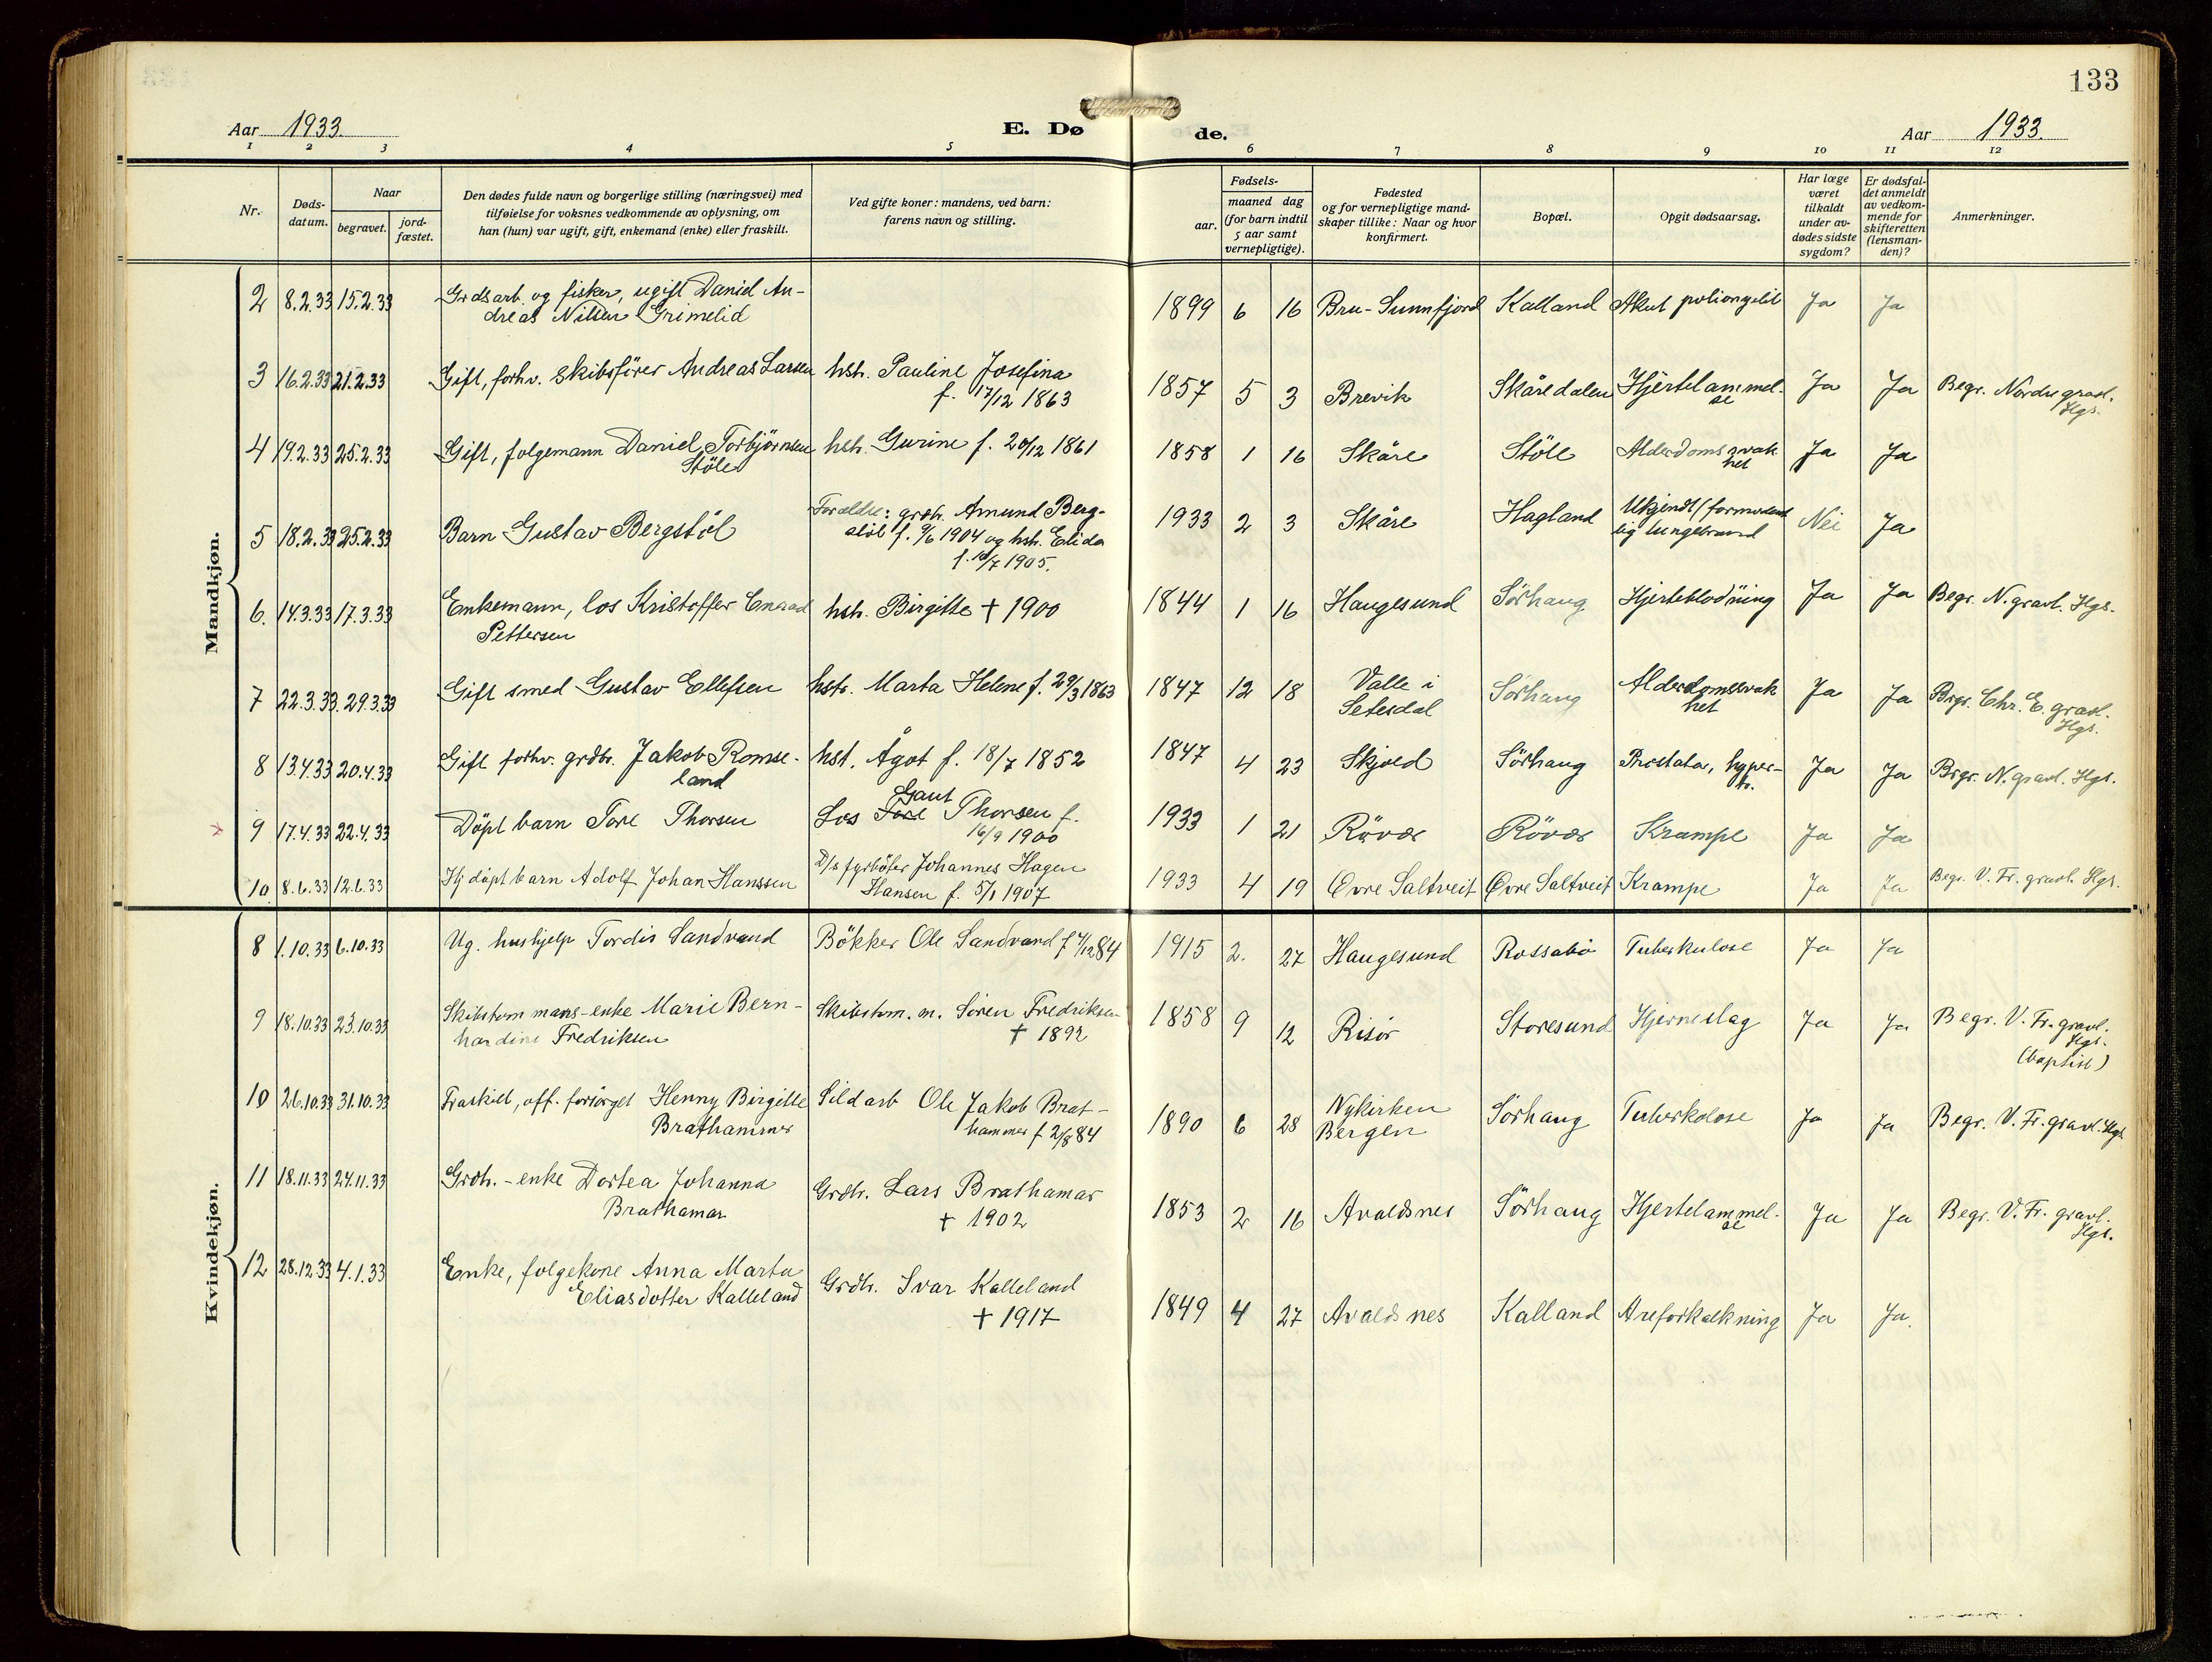 133
Aar 1933.
E. Dø
de.
Aar 1933.
1 2 3 4 5 6 7 8 9 10 11 12
Nr.
Døds-
datum.
Naar
begravet.
jord-
fæstet.
Den dødes fulde navn og borgerlige stilling (næringsvei) med
tilføielse for voksnes vedkommende av oplysning, om
han (hun) var ugift, gift, enkemand (enke) eller fraskilt.
Ved gifte koner: mandens, ved barn:
farens navn og stilling.
Fødsels-
aar.
maaned dag
(for barn indtil
5 aar samt
vernepligtige).
Fødested
og for vernepligtige mand-
skaper tillike: Naar og hvor
konfirmert.
Bopæl.
Opgit dødsaarsag.
Har læge
været
tilkaldt
under av-
dødes sidste
sygdom?
Er dødsfal-
det anmeldt
av vedkom-
mende for
skifteretten
(lensman-
den)?
Anmerkninger.
Mandkjøn.
2 8.2.33 15.2.33 Grdsarb. og fisker, ugift Daniel An-
dreas Nilsen Grimelid
1899 6 16 Bru-Sunnfjord Kalland Akut
Ja Ja
3 16.2.33 21.2.33 Gift, forhv. skibsfører Andreas Larsen hstr. Pauline Josefina
f. 17/12 1863
1857 5 3 Brevik Skåredalen Hjertelammel-
se
Ja Ja Begr. Nordre gravl.
Hgs.
4 19.2.33 25.2.33 Gift, folgemann Daniel Torbjørnsen
Støle
hstr. Gurine f. 20/12 1861
1858 1 16 Skåre Støle Alderdomssvak
het
Ja Ja
5 18.2.33 25.2.33 Barn Gustav Bergstøl
Forældre: grdbr. Amund Berg-
støl f. 9/6 1904 og hstr. Elida
f. 18/7 1905.
1933 2 3 Skåre Hagland Ukjendt (formodent
lig lungebrand
Nei Ja
6. 14.3.33 17.3.33 Enkemann, los Kristoffer Conrad
Pettersen
hstr. Birgitte † 1900
1844 1 16 Haugesund Sørhaug Hjerteblødning Ja Ja Begr. N. gravl. Hgs.
7 22.3.33. 29.3.33 Gift smed Gustav Ellefsen hstr. Marta Helene f. 29/3 1863
1847 12 18 Valle i
Setesdal
Sørhaug Alderdomssvak
het
Ja Ja Begr. Chr. E. gravl.
Hgs.
8 13.4.33 20.4.33 Gift forhv. grdbr. Jakob Romse-
land
hst. Ågot f. 18/7 1852
1847 4 23 Skjold Sørhaug Prostata, hyper-
tr.
Ja Ja Begr. N. gravl. Hgs.
9 17.4.33 22.4.33 Døpt barn Tore Thorsen
Gaut
Los Tore Thorsen f.
16/9 1900
1933 1 21 Røvær Røvær Krampe Ja Ja
10 8.6.33 12.6.33 Hj døpt barn Adolf Johan Hanssen
D/s fyrbøter Johannes Hagen
Hansen f. 5/1 1907
1933 4 19 Øvre Saltveit Øvre Saltveit Krampe Ja Ja Begr. V. Fr. gravl. Hgs.
Kvindekjøn.
8 1.10.33 6.10.33 Ug. hushjelp Tordis Sandvand Bøkker Ole Sandvand f 4/12 84
1915 2. 27 Haugesund Rossabø Tuberkulose Ja Ja
9 18.10.33 23.10.33 Skibstømmans-enke Marie Bern-
hardine Fredriksen
Skibstøm. m. Søren Fredriksen
† 1892
1858 9 12 Risør Storesund Hjerneslag Ja Ja Begr. V. Fr. gravl.
Hgs.
(baptist)
10 26.10.33 31.10.33 Fraskilt, off. forsørget Henny Birgitte
Brathammer
Sildarb Ole Jakob Brat-
hammer f 2/8 84
1890 6 28 Nykirken
Bergen
Sørhaug Tuberkolose Ja Ja Begr. V. Fr. gravl. Hgs.
11 18.11.33 24.11.33 Grdbr. - enke Dortea Johanna
Brathamar
Grdbr. Lars Brathamar
† 1902
1853 2 16 Avaldsnes Sørhaug Hjertelammel-
se
Ja Ja Begr. V. Fr. gravl.
Hgs.
12 28.12.33 4.1.33 Enke, folgekone Anna Marta
Eliasdotter Kalleland
Grdbr. Ivar Kalleland
† 1917
1849 4 27 Avaldsnes Kalland Areforkalkning Ja Ja.